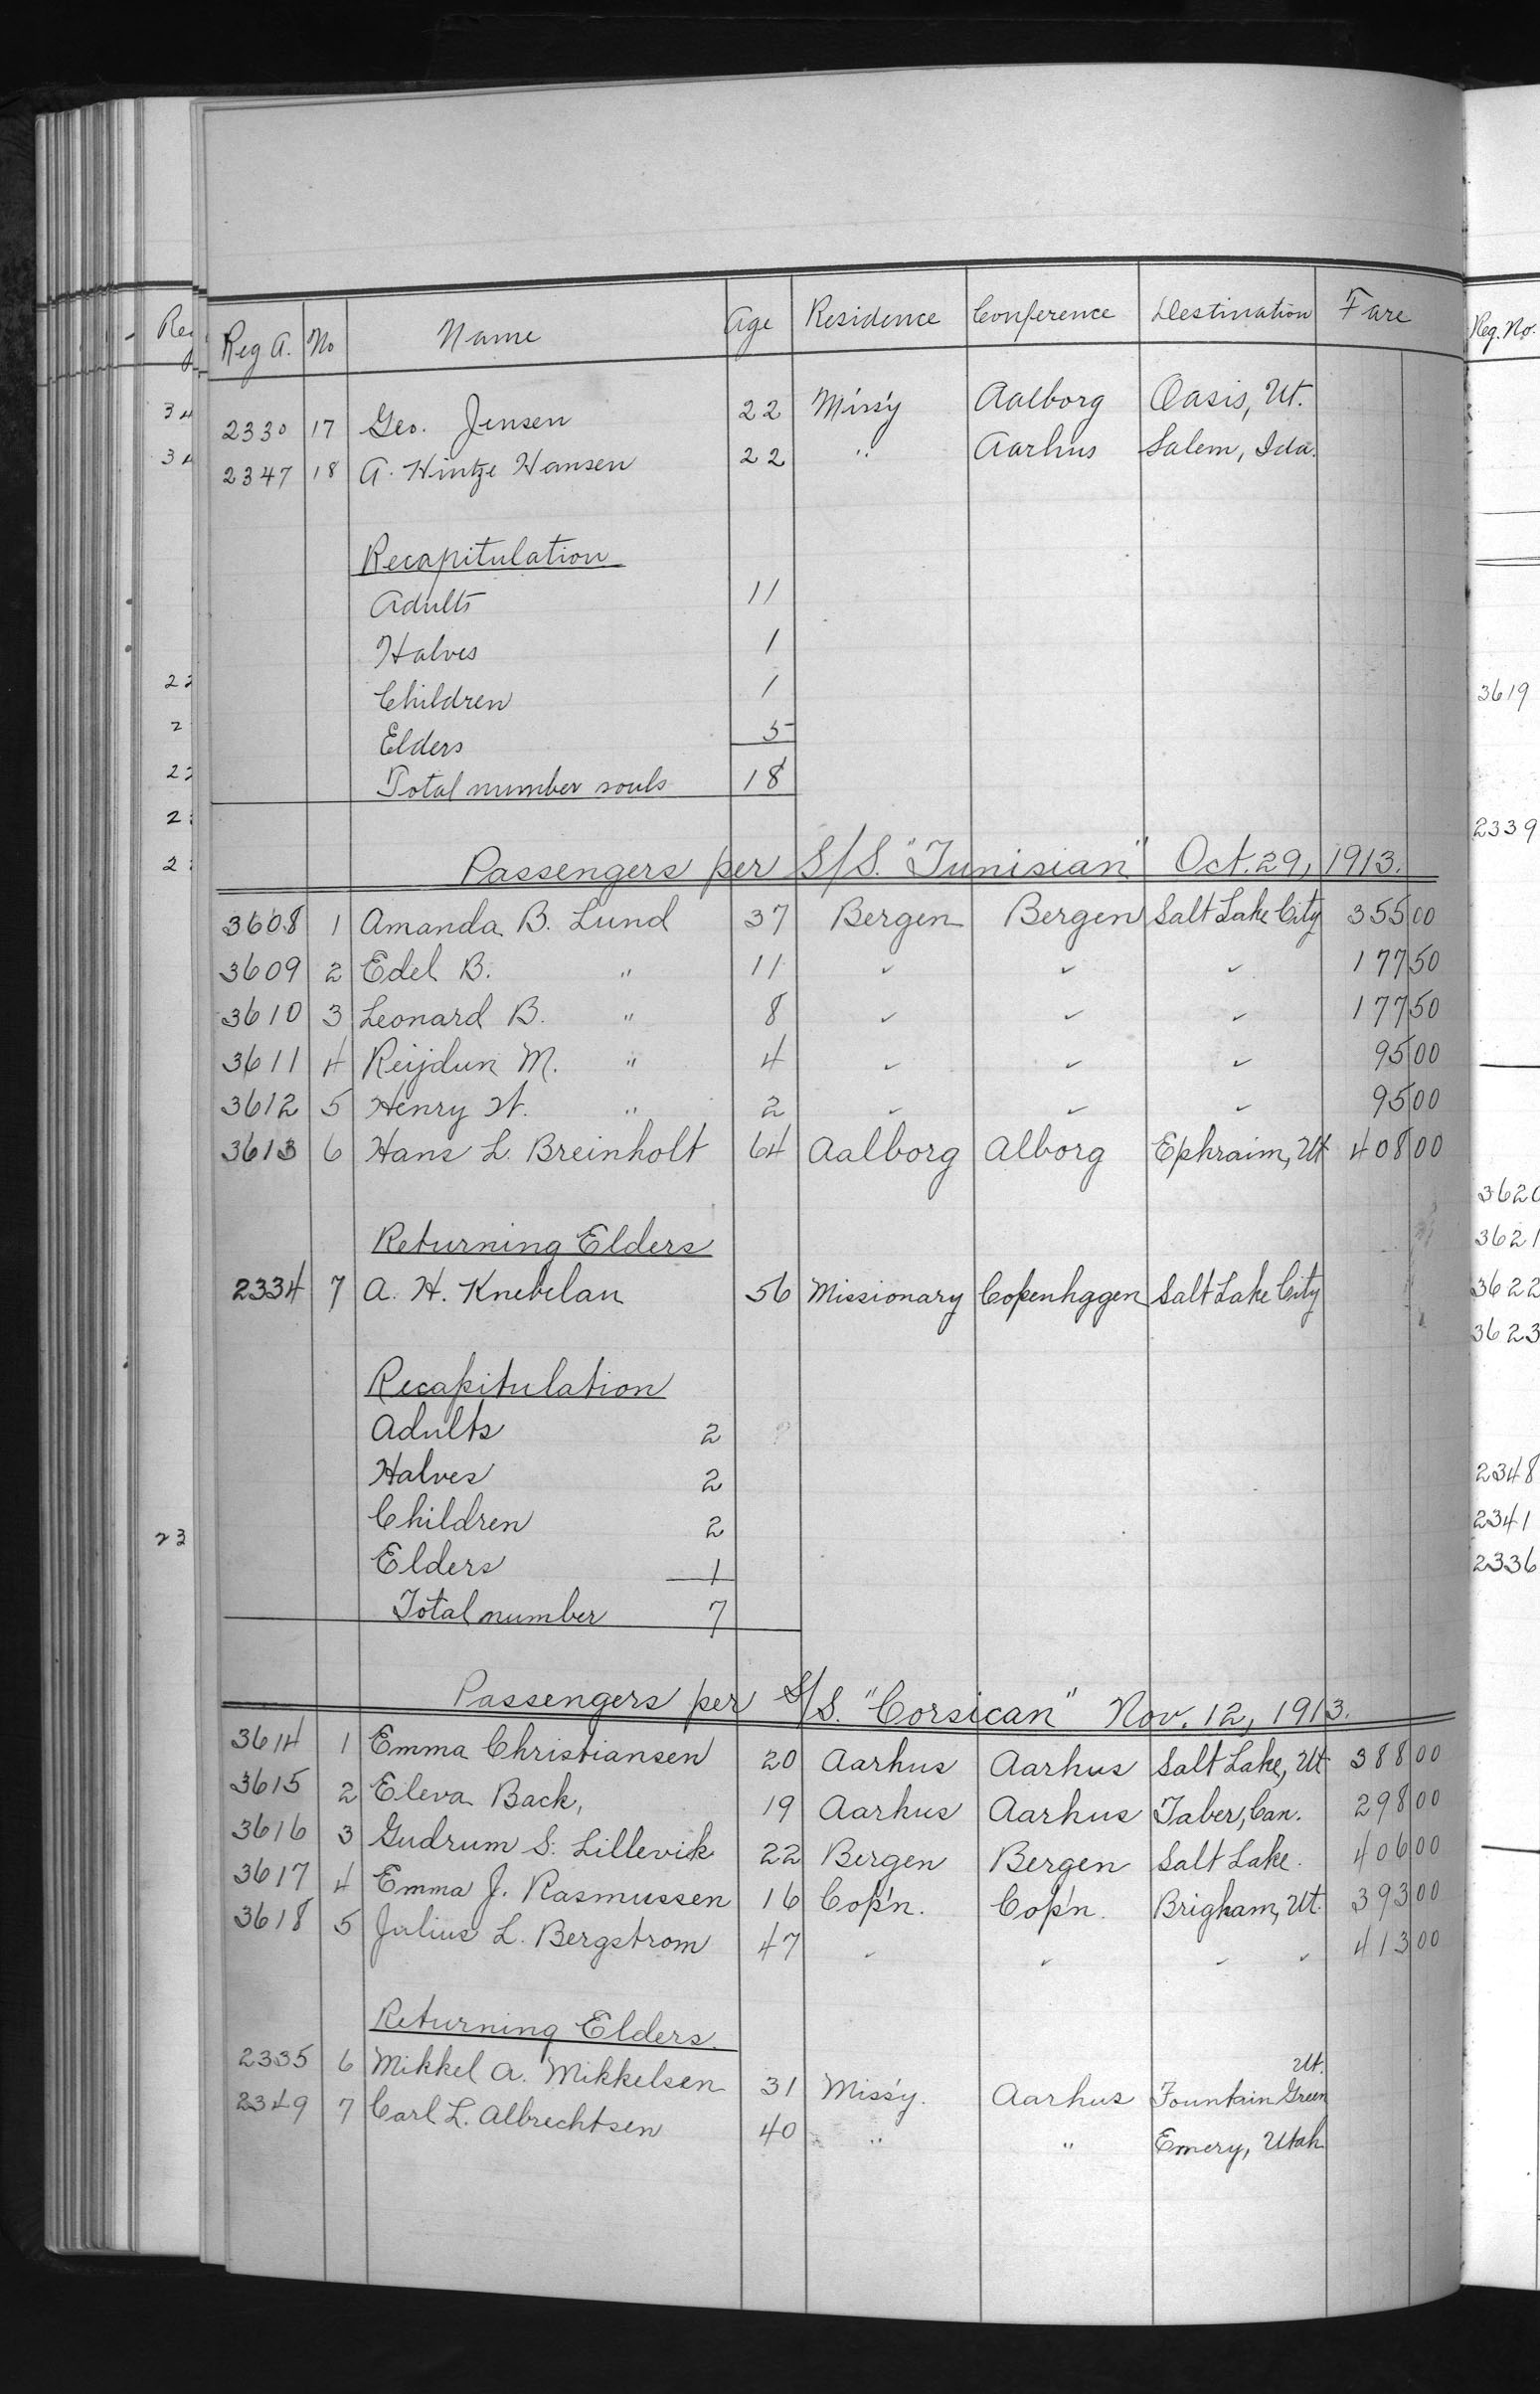 Reg A. No Name Age Residence Conference Destination Fare
2330 17 Geo. Jensen 22 Miss'y Aalborg Oasis, Ut.
2347 18 A. Hintze Hansen 22 " Aarhus Salem, Ida.
Recapitulation
Adults 11
Halves 1
Children 1
Elders 5
Total number souls 18
Passengers per S/S. "Tunisian" Oct. 29, 1913.
3608 1 Amanda B. Lund 37 Bergen Bergen Salt Lake City 355 00
3609 2 Edel B. " 11 ✓ ✓ ✓ 177 50
3610 3 Leonard B. " 8 ✓ ✓ ✓ 177 50
3611 4 Reijdun M. " 4 ✓ ✓ ✓ 95 00
3612 5 Henry W. " 2 ✓ ✓ ✓ 95 00
3613 6 Hans L. Breinholt 64 Aalborg Alborg Ephraim, Ut 408 00
Returning Elders
2334 7 A. H. Knebelau 56 Missionary Copenhagen Salt Lake City
Recapitulation
Adults 2
Halves 2
Children 2
Elders 1
Total number 7
Passengers per S/S. "Corsican" Nov. 12, 1913.
3614 1 Emma Christiansen 20 Aarhus Aarhus Salt Lake, Ut 388 00
3615 2 Eleva Back, 19 Aarhus Aarhus Taber, Can. 298 00
3616 3 Gudrum S. Lillevik 22 Bergen Bergen Salt Lake. 406 00
3617 4 Emma J. Rasmussen 16 Cop'n. Cop'n. Brigham, Ut. 393 00
3618 5 Julius L. Bergstrom 47 ✓ ✓ ✓ ✓ 413 00
Returning Elders.
2335 6 Mikkel A. Mikkelsen 31 Miss'y. Aarhus Fountain Green Ut.
2349 7 Carl L. Albrechtsen 40 " " Emery, Utah
Reg. No.
3619
2339
3620
3621
3622
3623
2348
2341
2336